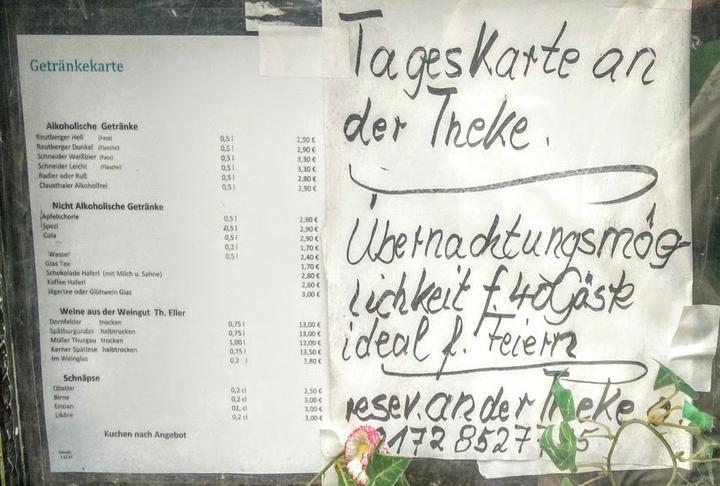 Getränkekarte
Alkoholische Getränke
Reutberger Hell (Fass) 0,5 l 2,90 €
Reutberger Dunkel (Flasche) 0,5 l 2,90 €
Schneider Weißbier (Fass) 0,5 l 3,30 €
Schneider Leicht (Flasche) 0,5 l 3,30 €
Radler oder Ruß 0,5 l 2,80 €
Clausthaler Alkoholfrei 0,5 l 2,90 €
Nicht Alkoholische Getränke
Apfelschorle 0,5 l 2,90 €
Spezi 0,5 l 2,90 €
Cola 0,5 l 2,90 €
0,2 l 1,70 €
Wasser 0,5 l 2,40 €
Glas Tee 1,70 €
Schokolade Haferl (mit Milch u. Sahne) 2,80 €
Kaffee Haferl 2,60 €
Jägertee oder Glühwein Glas 3,00 €
Weine aus der Weingut Th. Eller
Dornfelder trocken 0,75 l 13,00 €
Spätburgunder halbtrocken 0,75 l 13,00 €
Müller Thurgau trocken 1,00 l 12,00 €
Kerner Spätlese halbtrocken 0,75 l 13,50 €
im Weinglas 0,2 l 3,80 €
Schnäpse
Obstler 0,2 cl 2,50 €
Birne 0,2 cl 3,00 €
Enzian 02, cl 3,00 €
Liköre 0,2 cl 3,00 €
Kuchen nach Angebot
TagesKarte an
der Theke.
Übernachtungsmög-
lichkeit f. 40 Gäste
ideal f. Feiern
reserv. an der Theke